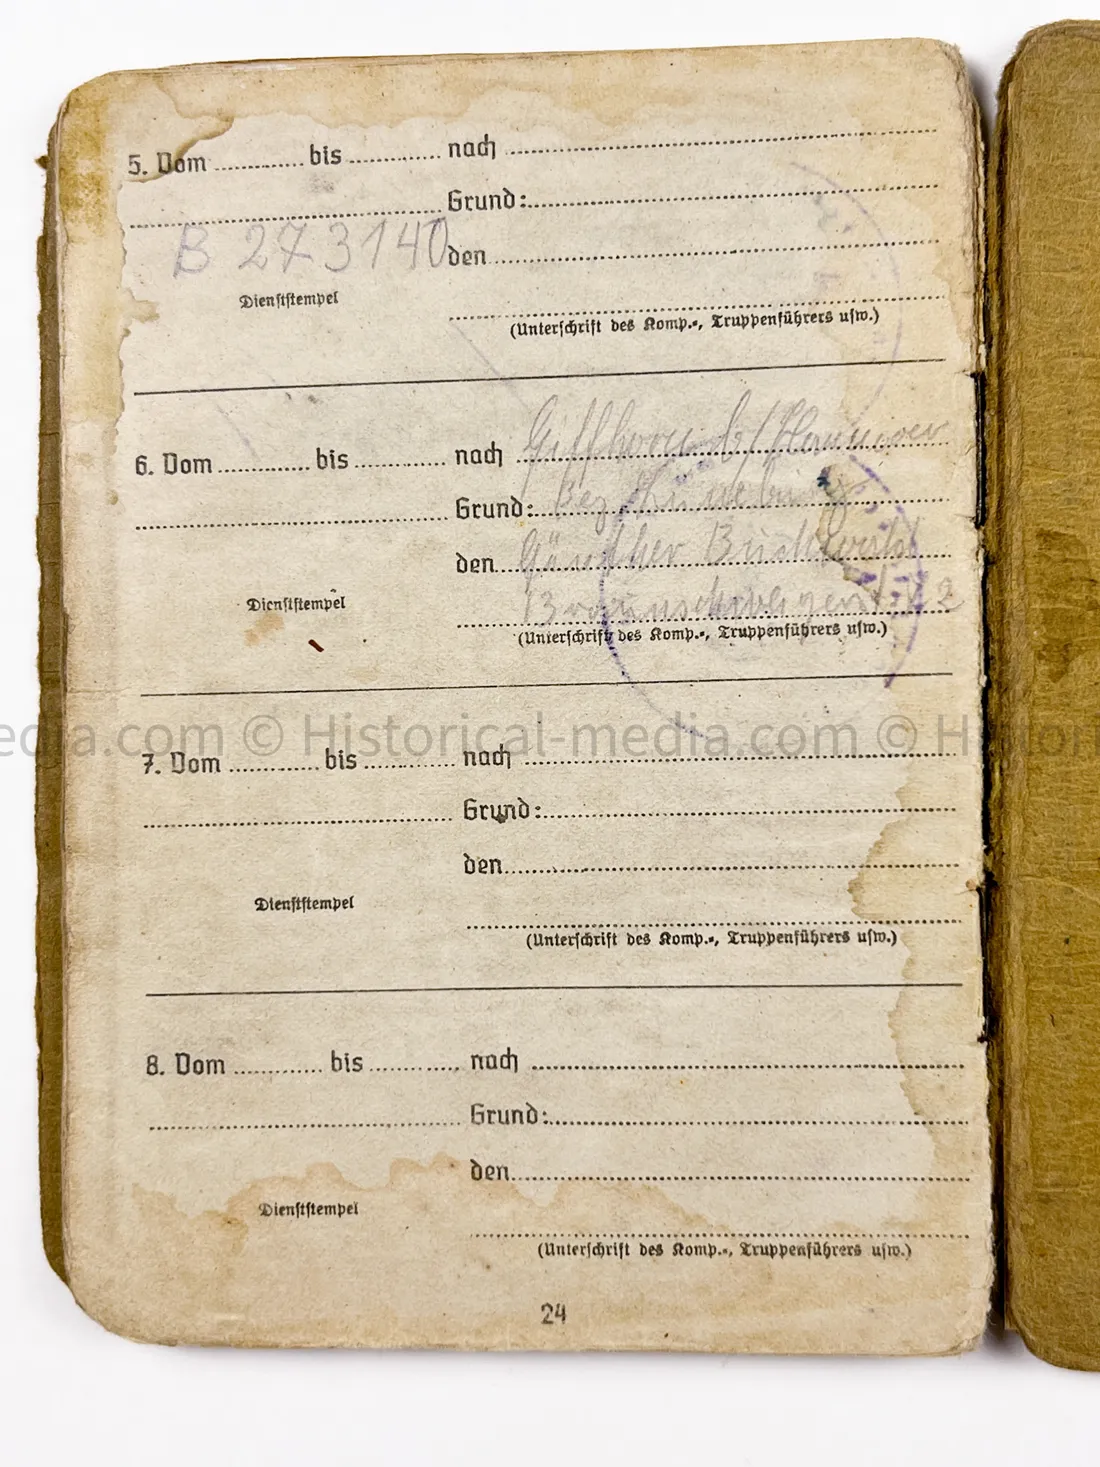 5. Vom ............ bis ............ nach ............
Grund: ............
B 273140
den ............
Dienststempel
(Unterschrift des Komp.-, Truppenführers usw.)
6. Vom ............ bis ............ nach Giffhorn b/Hannover
Grund: Bez Lüneburg
den Günther
Dienststempel
(Unterschrift des Komp.-, Truppenführers usw.)
edia.com © Historical-media.com © Histori
7. Vom ............ bis ............ nach ............
Grund: ............
den ............
Dienststempel
(Unterschrift des Komp.-, Truppenführers usw.)
8. Vom ............ bis ............ nach ............
Grund: ............
den ............
Dienststempel
(Unterschrift des Komp.-, Truppenführers usw.)
24